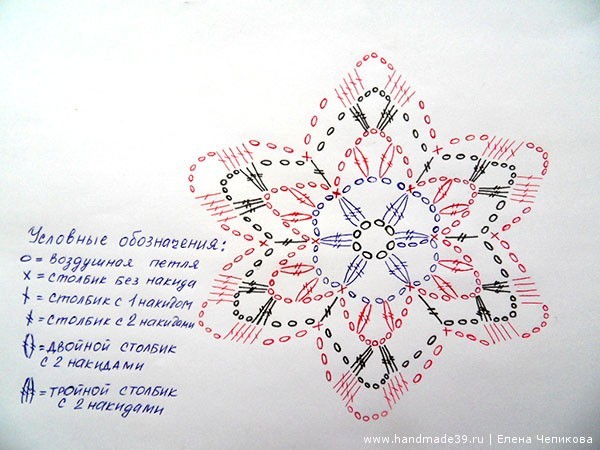 Условные обозначения:
о = воздушная петля
х = столбик без накида
† = столбик с 1 накидом
‡ = столбик с 2 накидами
= двойной столбик
с 2 накидами
= тройной столбик
с 2 накидами
www.handmade39.ru | Елена Чепикова